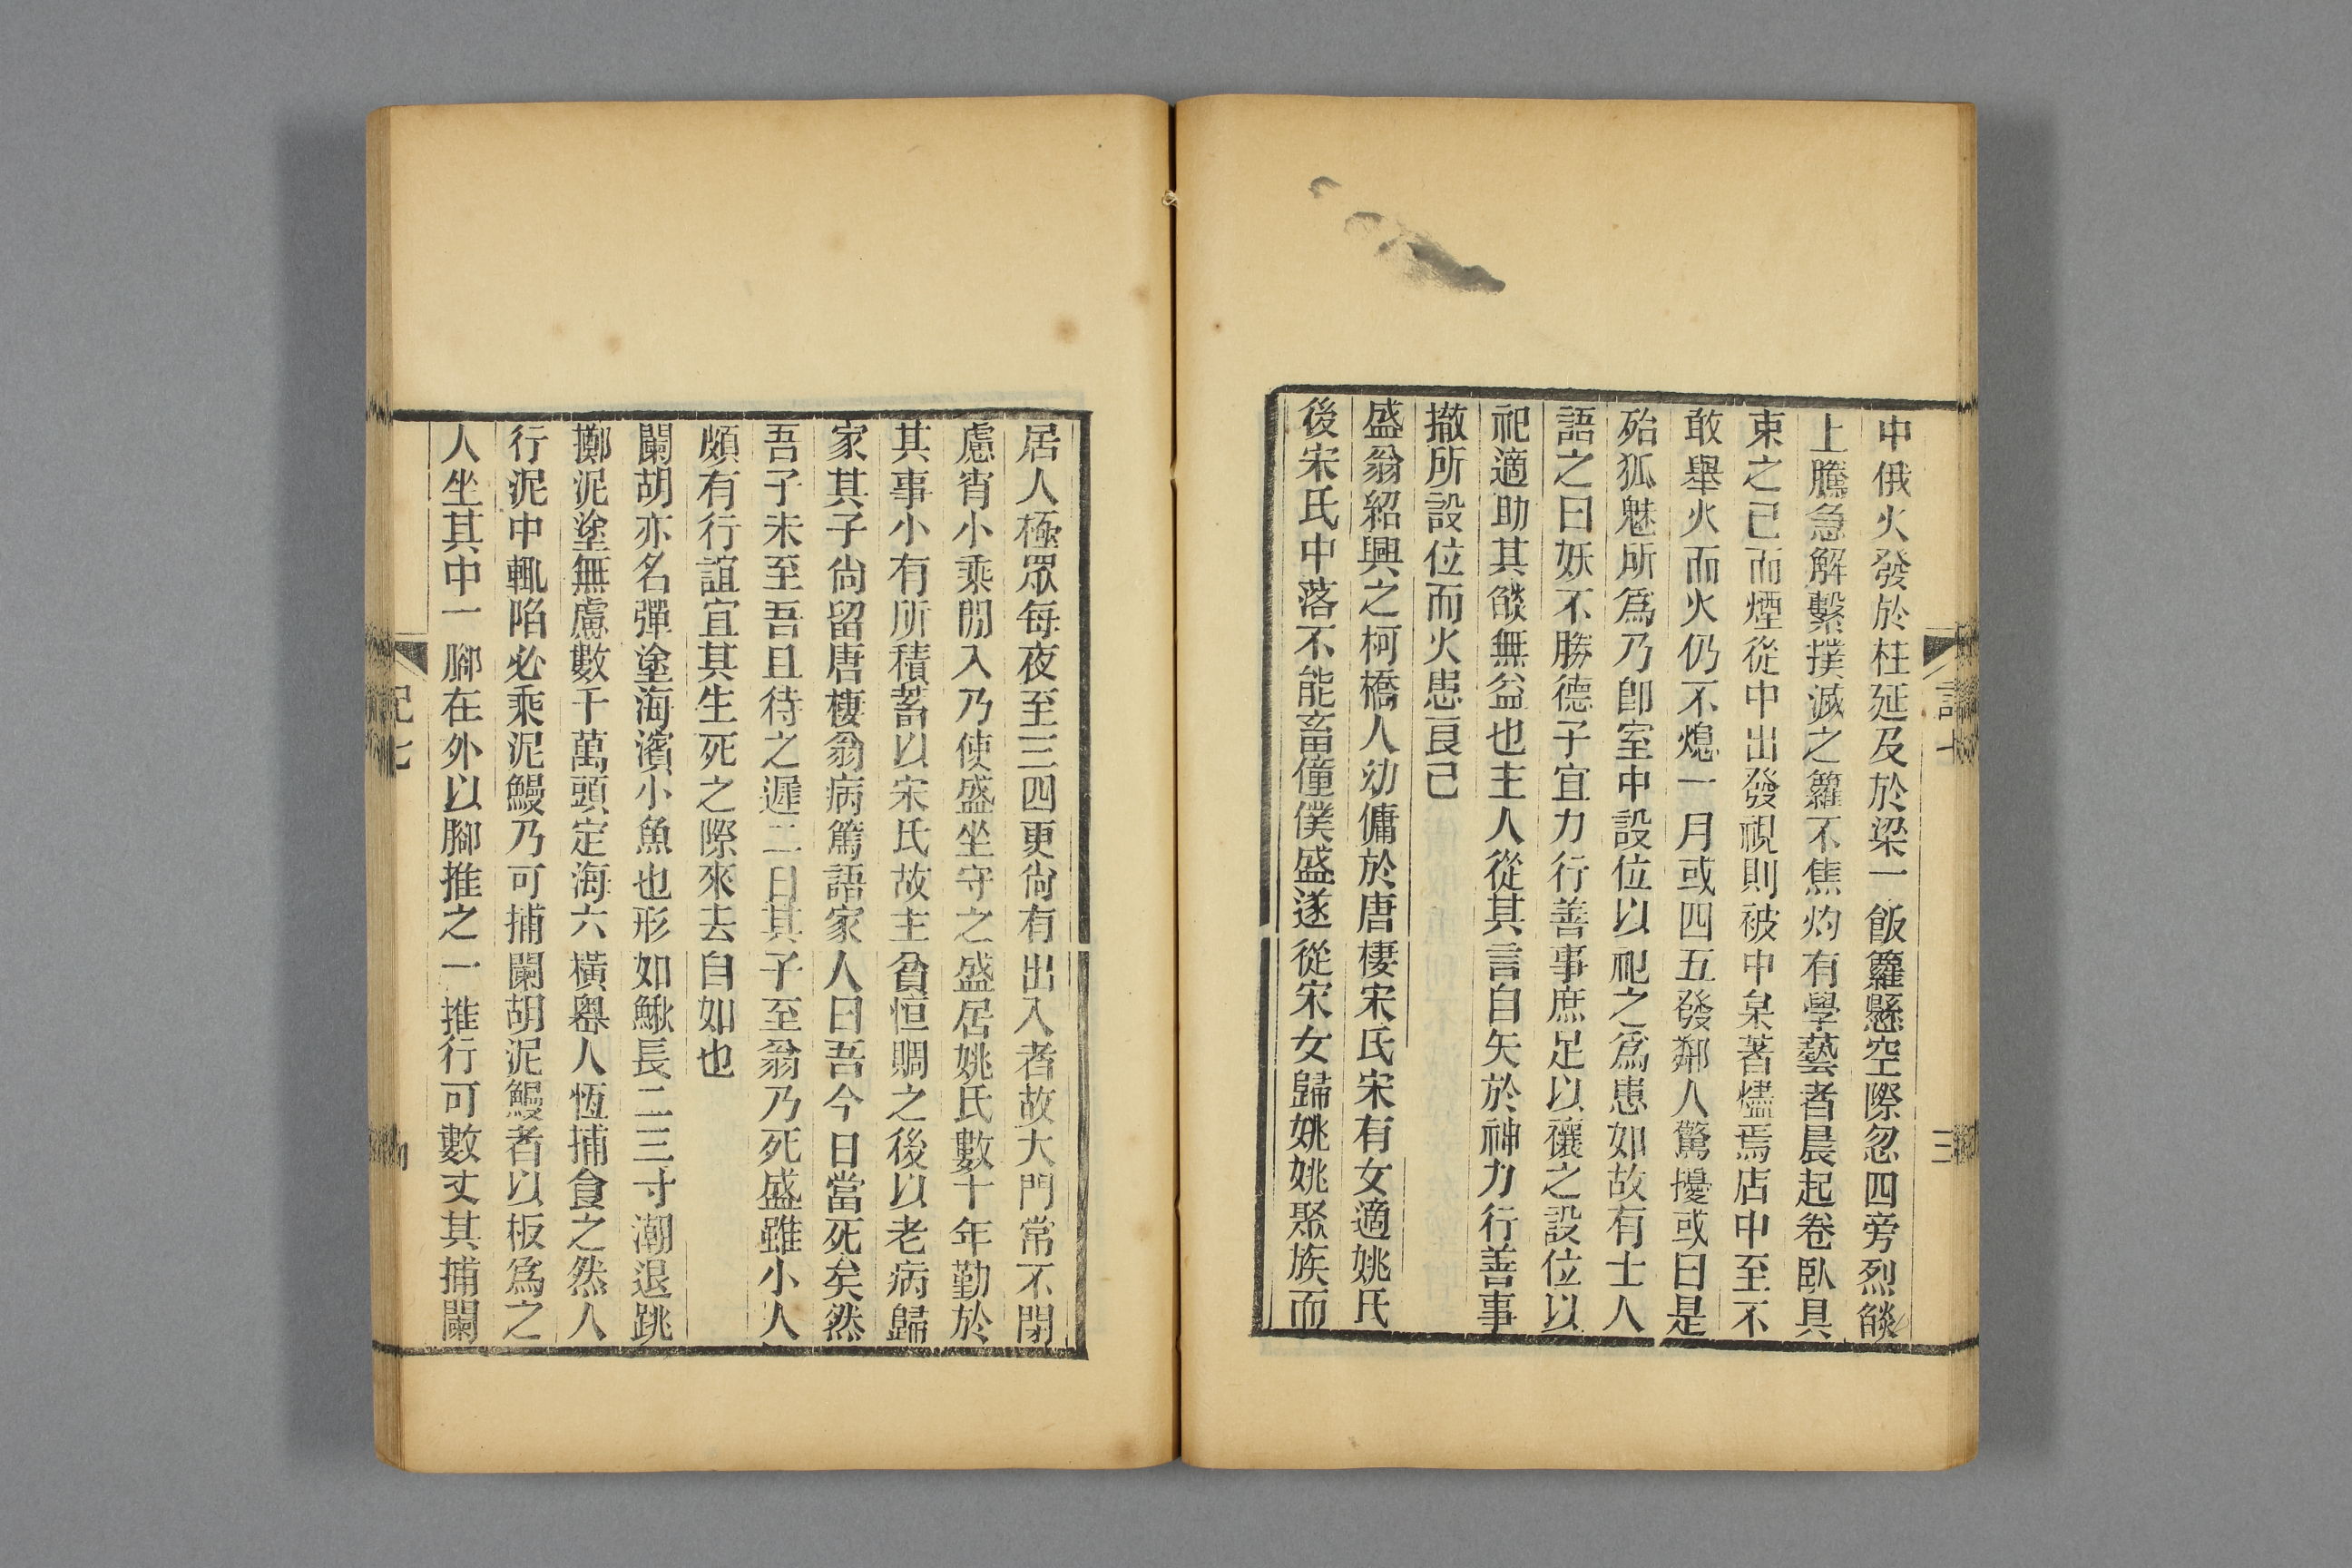 中俄火發於柱延及於梁一飯籮懸空際忽四旁烈燄
上騰急解繫撲滅之籮不焦灼有學藝者晨起卷臥具
束之已而煙從中出發視則被中枲著燼焉店中至不
敢舉火而火仍不熄一月或四五發鄰人驚擾或曰是
殆狐魅所爲乃卽室中設位以祀之爲患如故有士人
語之曰妖不勝德子宜力行善事庶足以禳之設位以
祀適助其燄無益也主人從其言自矢於神力行善事
撤所設位而火患良已
盛翁紹興之柯橋人幼傭於唐棲宋氏宋有女適姚氏
後宋氏中落不能畜僮僕盛遂從宋女歸姚姚聚族而
三
居人極眾每夜至三四更尙有出入者故大門常不閉
慮宵小乘閒入乃使盛坐守之盛居姚氏數十年勤於
其事小有所積蓄以宋氏故主貧恒賙之後以老病歸
家其子尙留唐棲翁病篤語家人曰吾今日當死矣然
吾子未至吾且待之遲二日其子至翁乃死盛雖小人
頗有行誼宜其生死之際來去自如也
闌胡亦名彈塗海濱小魚也形如鰍長二三寸潮退跳
擲泥塗無慮數千萬頭定海六橫嶴人恆捕食之然人
行泥中輒陷必乘泥鰻乃可捕闌胡泥鰻者以板爲之
人坐其中一腳在外以腳推之一推行可數丈其捕闌